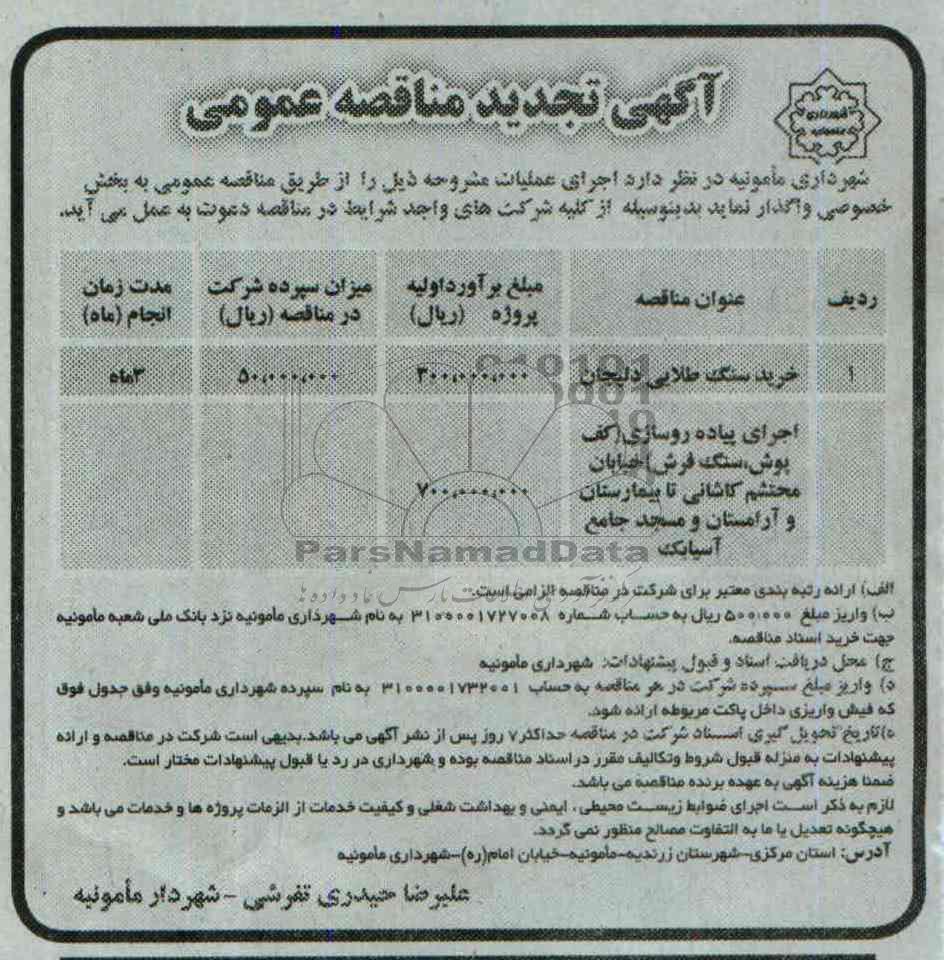 آگهی تجدید مناقصه عمومی
شهرداری
مأمونیه
شهرداری مأمونیه در نظر دارد اجرای عملیات مشروحه ذیل را از طریق مناقصه عمومی به بخش
خصوصی واگذار نماید بدینوسیله از کلیه شرکت های واجد شرایط در مناقصه دعوت به عمل می آید.
ردیف
عنوان مناقصه
مبلغ برآورداولیه
پروژه (ریال)
میزان سپرده شرکت
در مناقصه (ریال)
مدت زمان
انجام (ماه)
۱
خرید سنگ طلایی دلیجان
۳۰۰،۰۰۰،۰۰۰
۵۰،۰۰۰،۰۰۰
۳ماه
اجرای پیاده روسازی(کف
پوش،سنگ فرش)خیابان
محتشم کاشانی تا بیمارستان
و آرامستان و مسجد جامع
آسیابک
۷۰۰،۰۰۰،۰۰۰
ParsNamadData
الف) ارائه رتبه بندی معتبر برای شرکت در مناقصه الزامی است.
ب) واریز مبلغ ۵۰۰،۰۰۰ ریال به حساب شماره ۳۱۰۰۰۰۱۷۲۷۰۰۸ به نام شهرداری مأمونیه نزد بانک ملی شعبه مأمونیه
جهت خرید اسناد مناقصه.
ج) محل دریافت اسناد و قبول پیشنهادات: شهرداری مأمونیه
د) واریز مبلغ سپرده شرکت در هر مناقصه به حساب ۳۱۰۰۰۰۱۷۳۲۰۰۱ به نام سپرده شهرداری مأمونیه وفق جدول فوق
که فیش واریزی داخل پاکت مربوطه ارائه شود.
ه)تاریخ تحویل گیری اسناد شرکت در مناقصه حداکثر۷ روز پس از نشر آگهی می باشد.بدیهی است شرکت در مناقصه و ارائه
پیشنهادات به منزله قبول شروط وتکالیف مقرر دراسناد مناقصه بوده و شهرداری در رد یا قبول پیشنهادات مختار است.
ضمنا هزینه آگهی به عهده برنده مناقصه می باشد.
لازم به ذکر است اجرای ضوابط زیست محیطی، ایمنی و بهداشت شغلی و کیفیت خدمات از الزمات پروژه ها و خدمات می باشد و
هیچگونه تعدیل یا ما به التفاوت مصالح منظور نمی گردد.
آدرس: استان مرکزی-شهرستان زرندیه-مأمونیه-خیابان امام(ره)-شهرداری مأمونیه
علیرضا حیدری تفرشی - شهردار مأمونیه